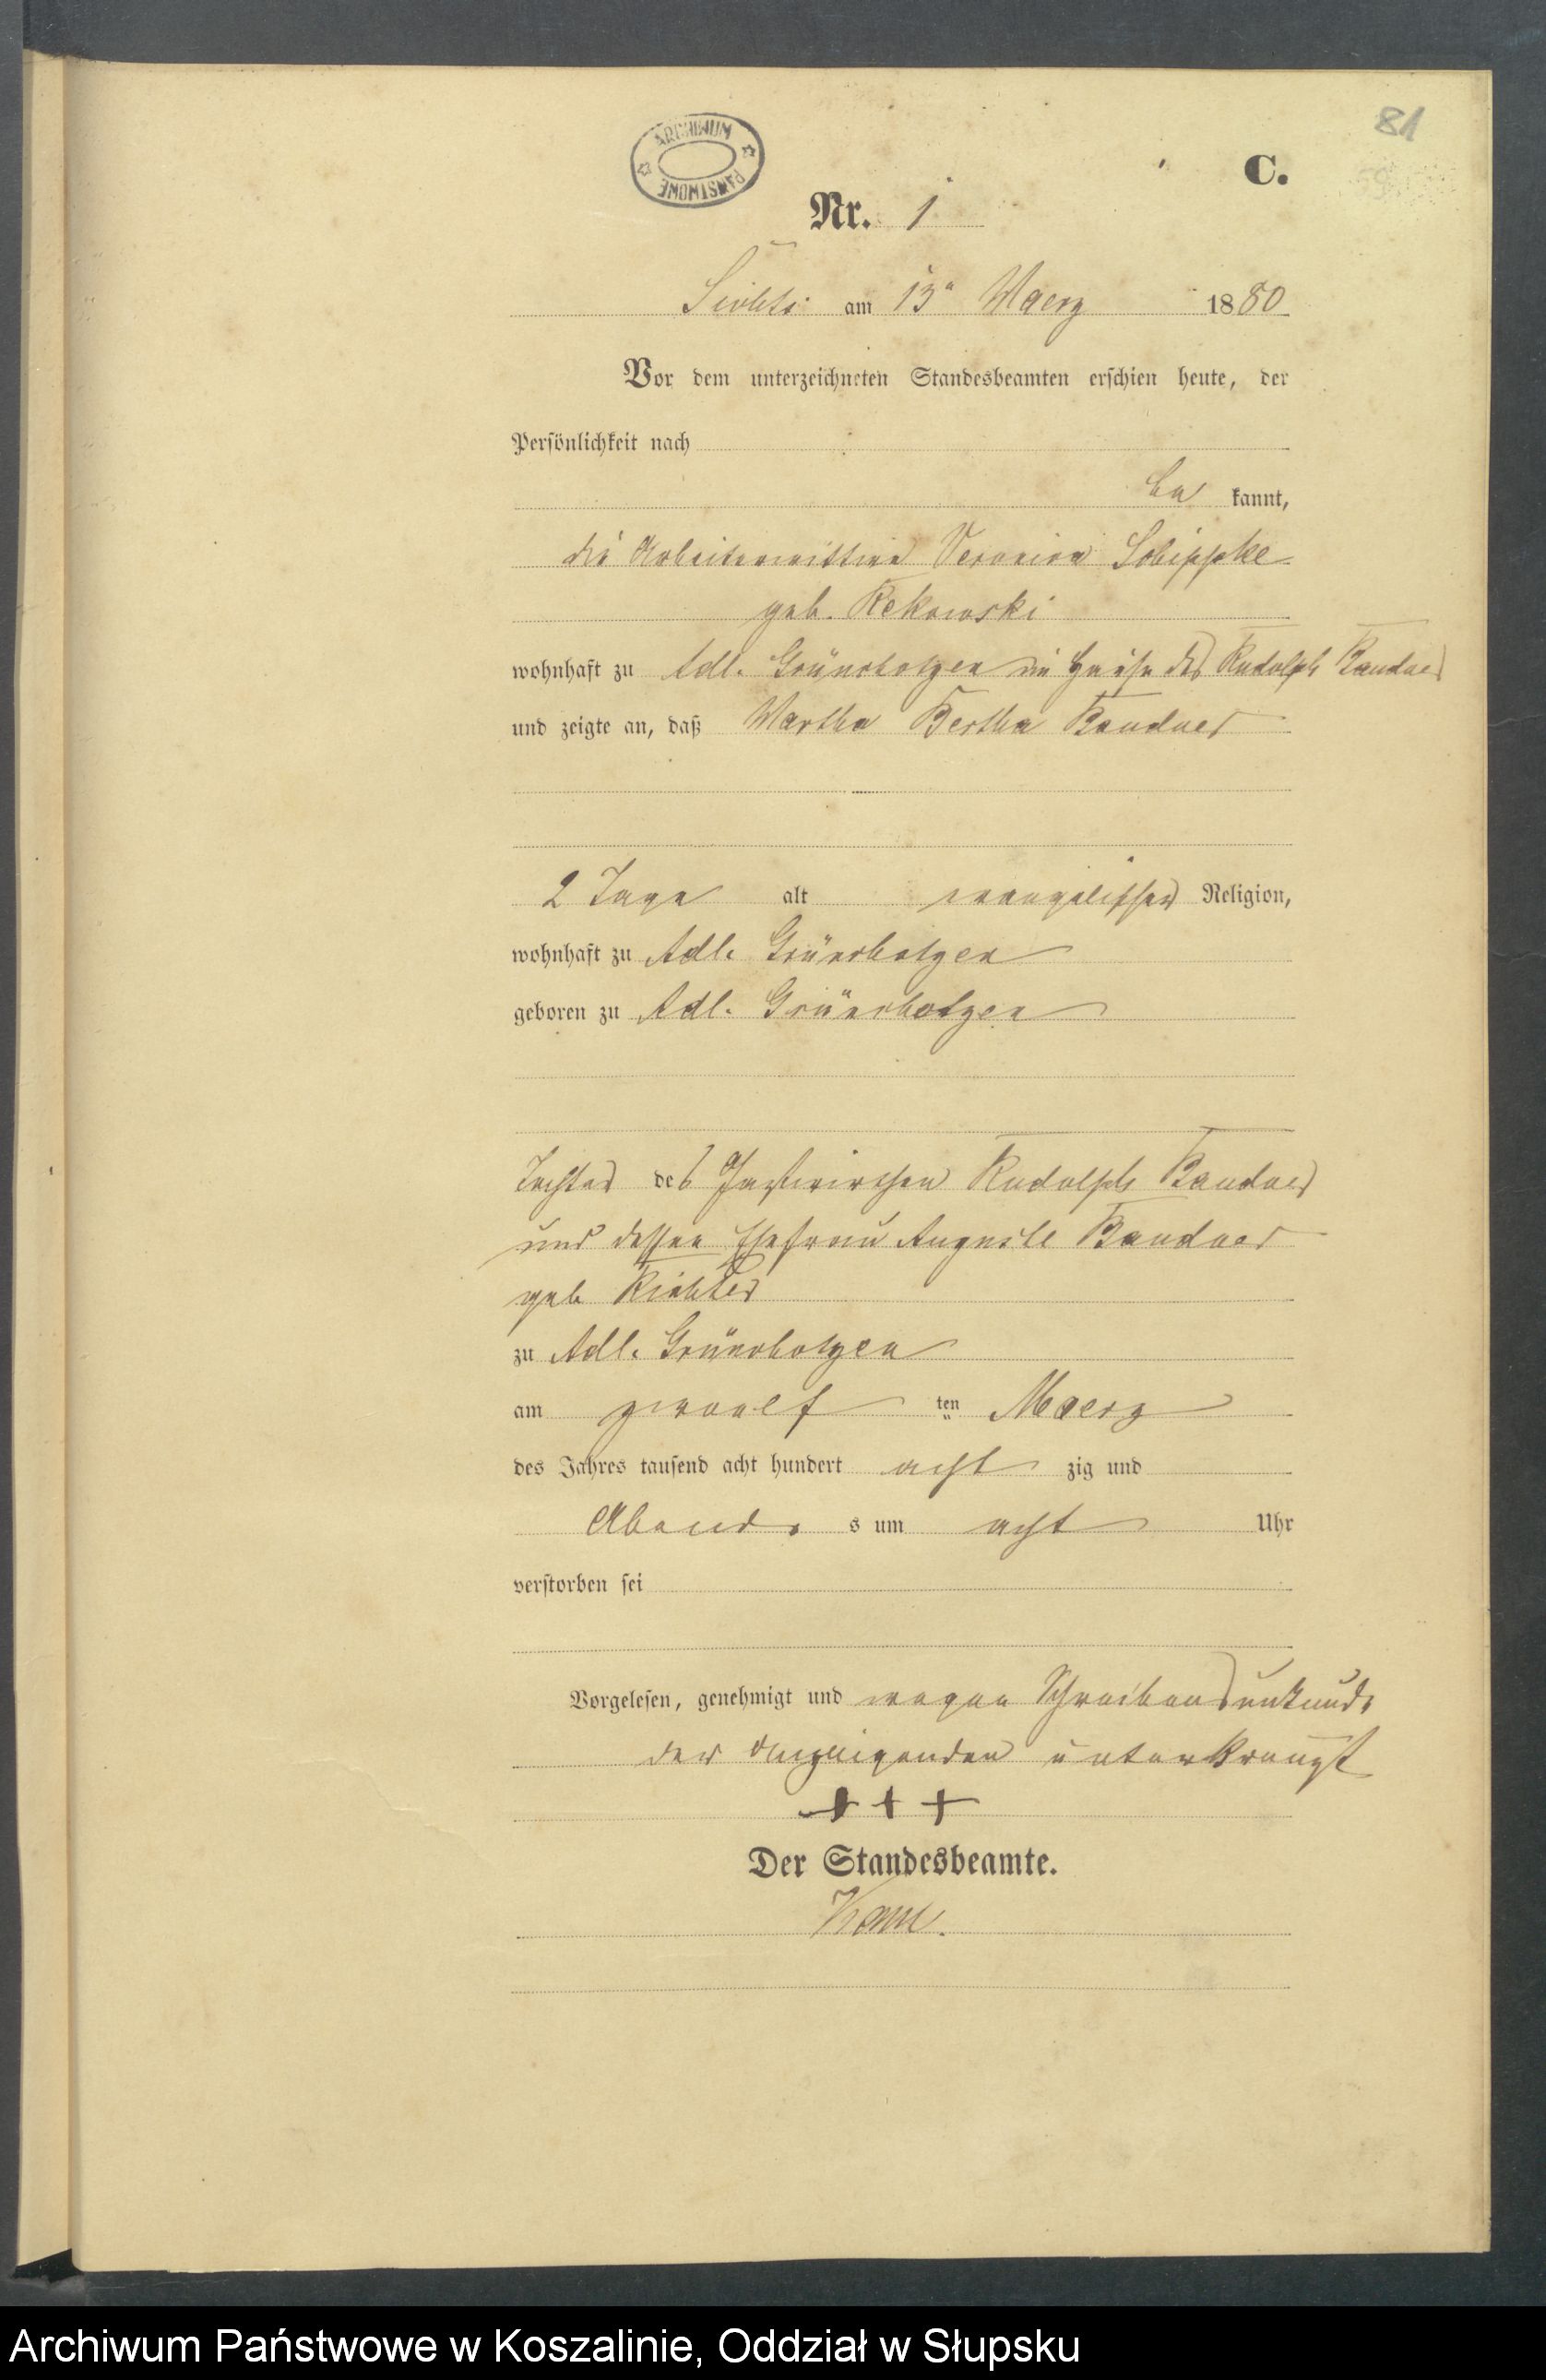 81
ARCHIWUM PAŃSTWOWE
C.
Nr. 1
am 13" Maerz 1880
Vor dem unterzeichneten Standesbeamten erschien heute, der
Persönlichkeit nach
be kannt,
die Arbeiterwittwe Veronica Schippke
geb. Rekowski
wohnhaft zu Adl. Grünchotzen im Hause des Rudolph Bandner
und zeigte an, daß Martha Bertha Bandner
2 Tage alt evangelischer Religion,
wohnhaft zu Adl. Grünchotzen
geboren zu Adl. Grünchotzen
Tochter des Gastwirthen Rudolph Bandner
und dessen Ehefrau Auguste Bandner
geb Richter
zu Adl. Grünchotzen
am zwoelf ten Maerz
des Jahres tausend acht hundert acht zig und
Abends s um acht Uhr
verstorben sei
Vorgelesen, genehmigt und wegen Schreibensunkunde
der Anzeigenden unterkreuzt
+++
Der Standesbeamte.
Archiwum Państwowe w Koszalinie, Oddział w Słupsku